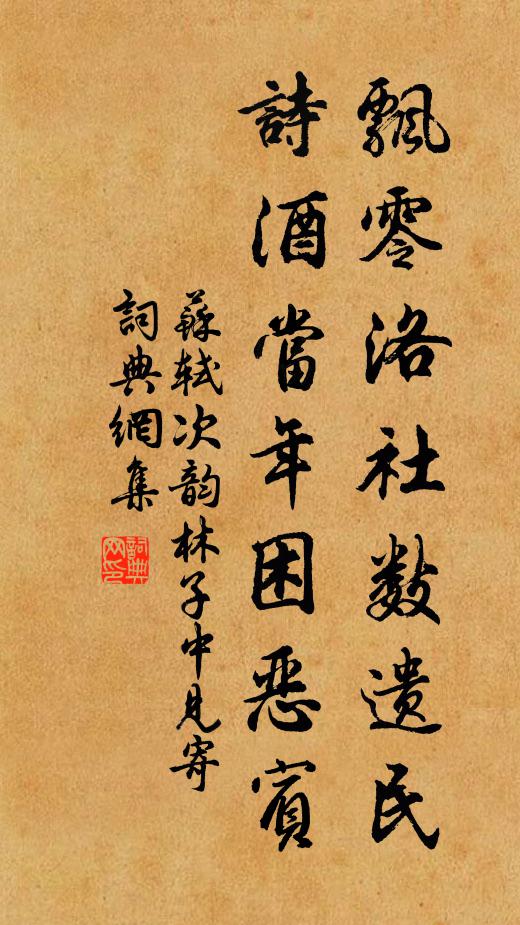 飄零洛社數遺民
詩酒當年困惡賓
蘇軾次韵林子中見寄
詞典網集
詞典網印